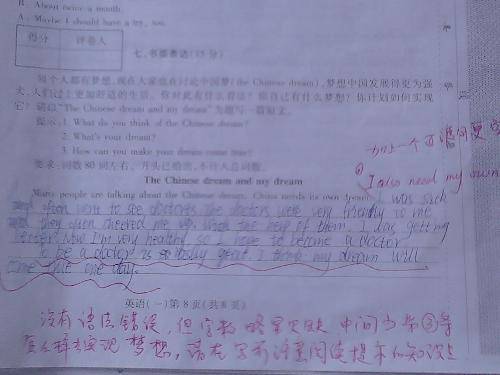 B. About twice a month.
A. Maybe I should have a try, too.
得分 评卷人
七、书面表达(15分)
每个人都有梦想,现在大家也在讨论中国梦(the Chinese dream),梦想中国发展得更为强
大,人们过上更加舒适的生活。你对此有什么看法?你自己有什么梦想?你计划如何实现
它?请以"The Chinese dream and my dream"为题写一篇短文。
提示:1. What do you think of the Chinese dream?
2. What's your dream?
3. How can you make your dream come true?
要求:词数80词左右。开头已给出,不计入总词数。
加上一个可
I also need my own
The Chinese dream and my dream
Many people are talking about the Chinese dream. China needs its own dream. I was sick
often went to see doctors. The doctors were very friendly to me
they often cheered me up. With the help of them. I was getting
better. Now I'm very healthy so I hope to become a doctor
To be a doctor is really great. I think my dream will
come true one day.
英语(一)第8页(共8页)
没有语法错误,但字数略显欠缺 中间少第③条
怎么样去实现梦想,请在写前注意阅读提示和知识点